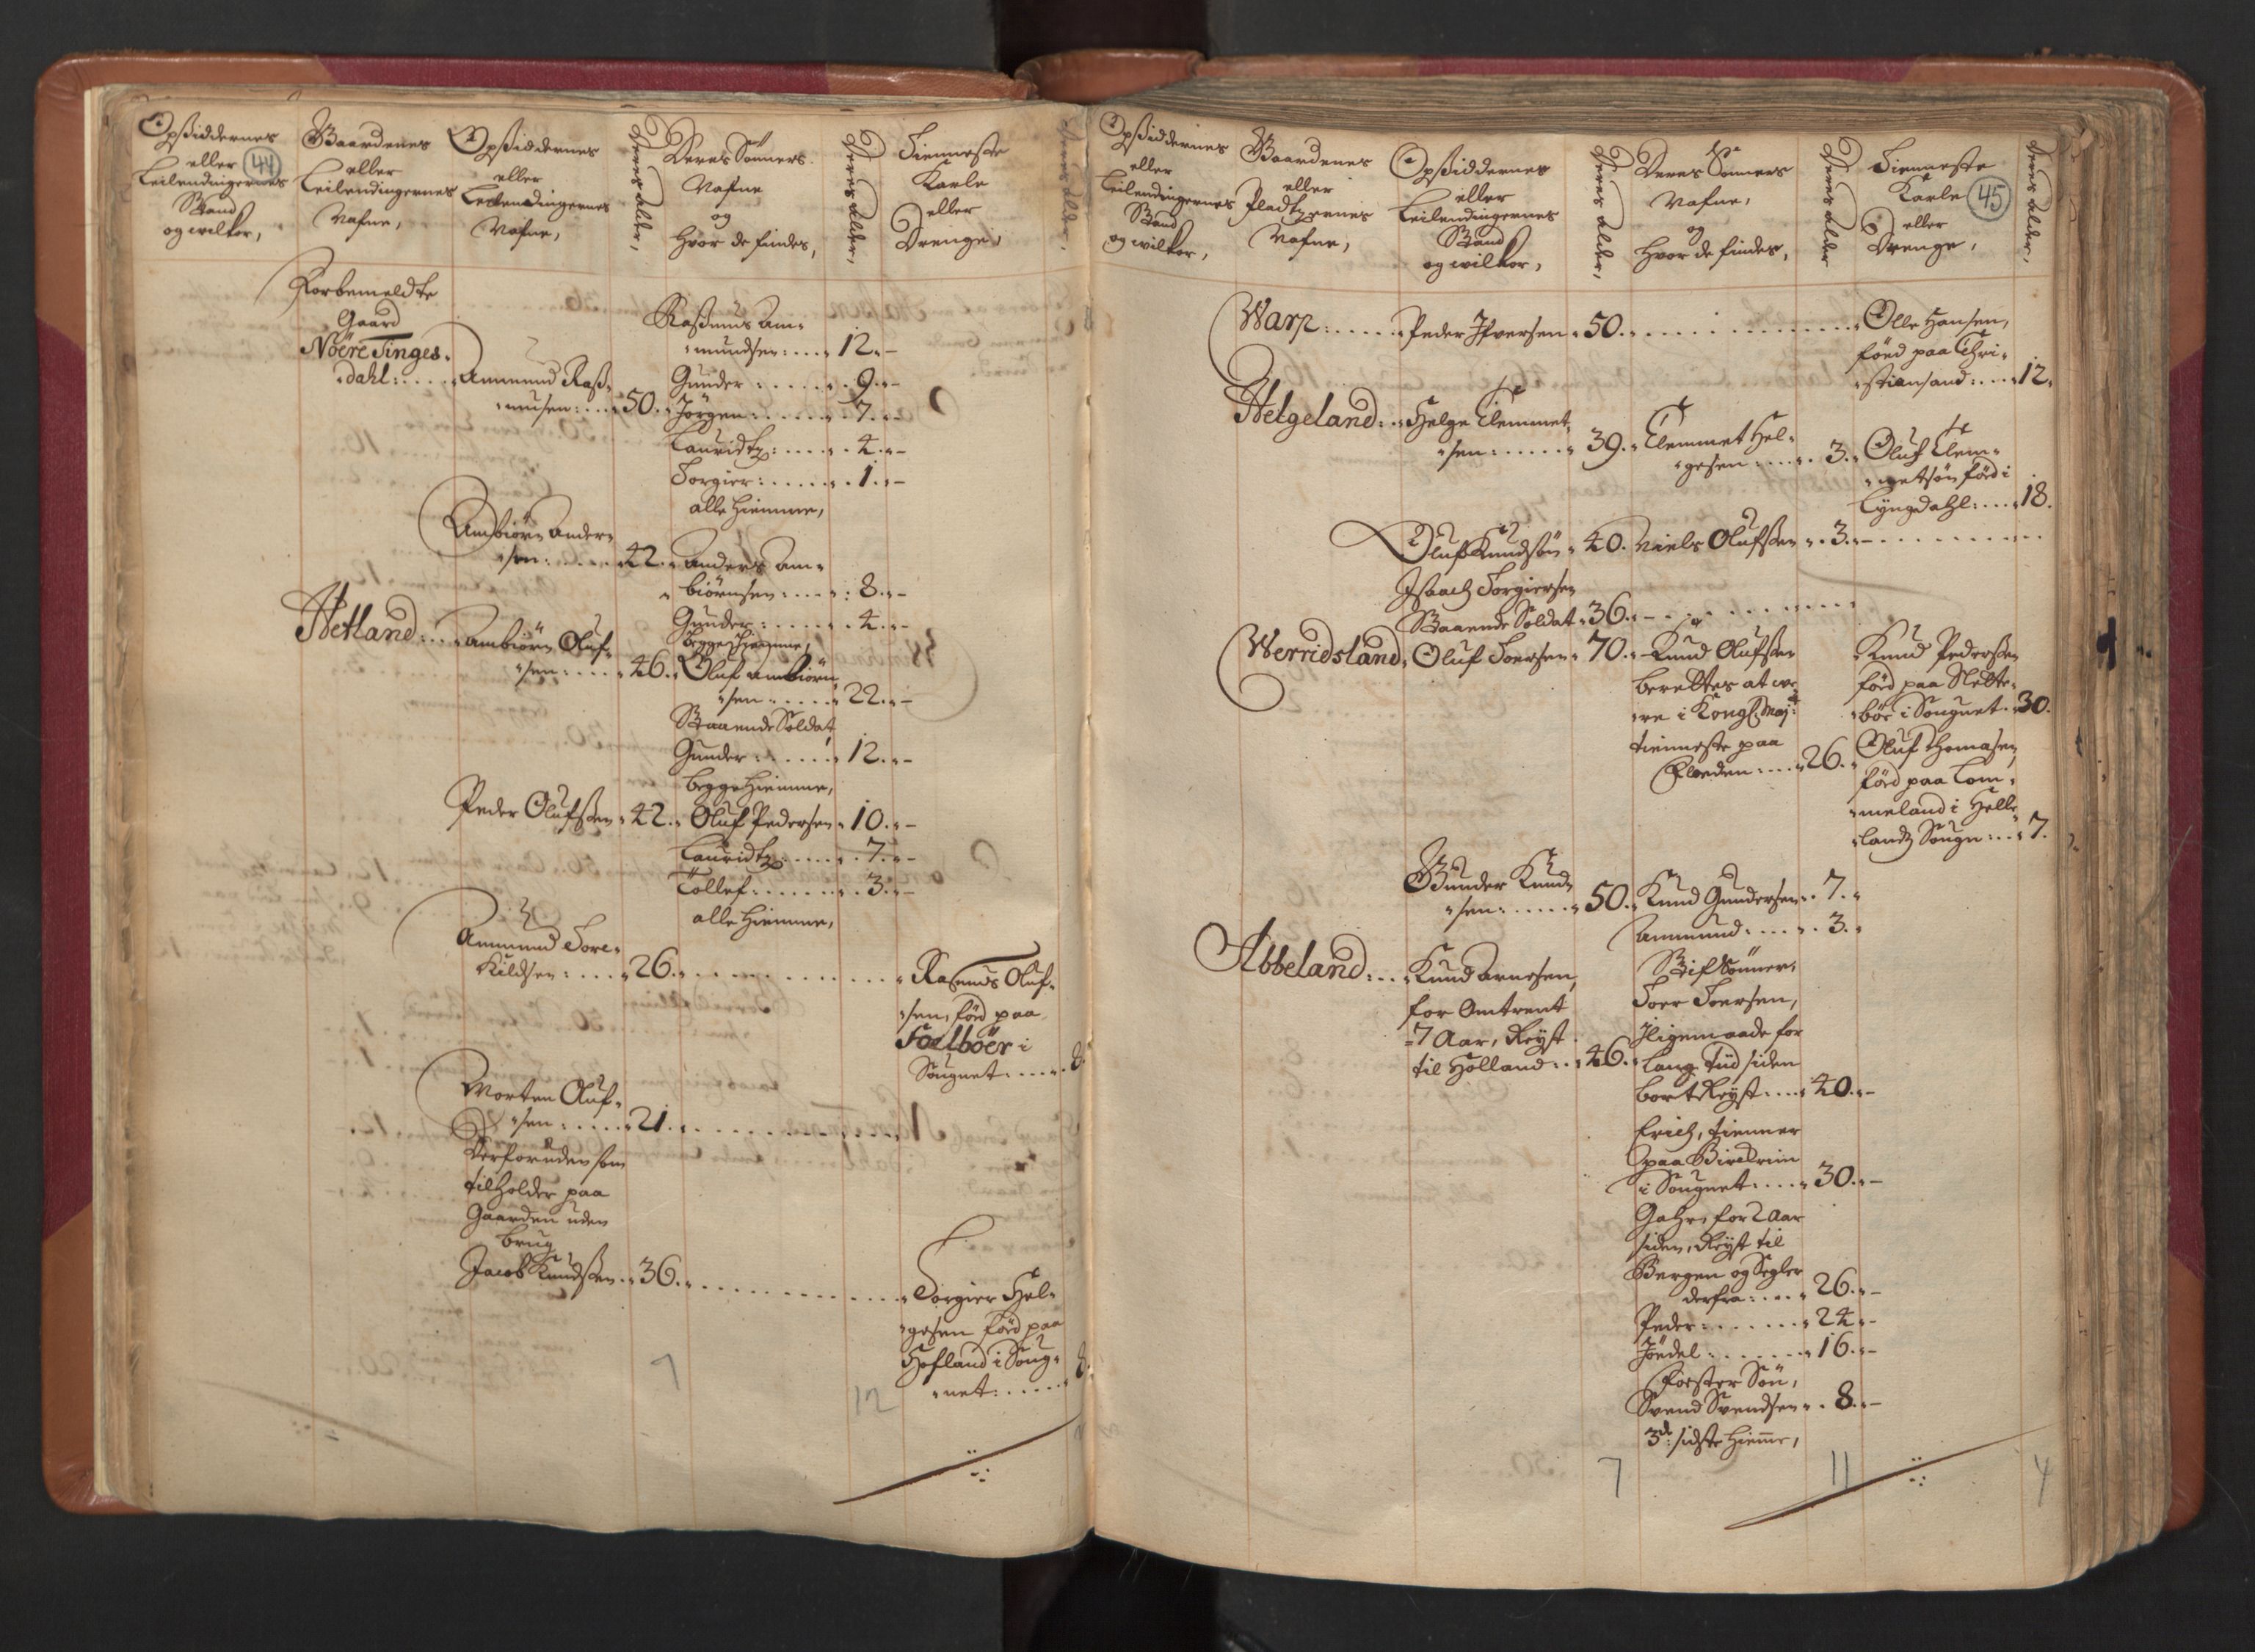 Opsiddernes
eller
Leilendingernes
Stand
og wilkor,
44
Gaardenes
eller
Leilendingernes
Nafne,
Opsiddernes
eller
Leilendingernes
Nafne,
Deres alder,
Deres Sönners
Nafne
og
hvor de findes,
Deres alder,
Tienneste
Karle
eller
Drenge,
Deres alder,
Forbemeldte
Gaard
Nöere Tinges-
dahl: Ammund Raß-
musen: 50.
Raßmus Am-
mundsen: 12.
Gunder: 9.
Jörgen: 7.
Lauridtz: 4.
Torgier: 1.
alle hiemme,
Ambiörn Ander-
sen: 42. Anders Am-
biörnsen: 8.
Gunder: 4.
begge hiemme,
Hetland: Ambiörn Oluf-
sen: 46. Oluf Ambiörn-
sen: 22.
Staaende Soldat
Gunder: 12.
begge hiemme,
Peder Olufsen 42. Oluf Pedersen 10.
Lauridtz: 7.
Tollef: 3.
alle hiemme,
Ammund Tore-
kildsen: 26. Rasmus Oluf-
sen, föd paa
Foelböer i
Sougnet: 8.
Morten Oluf-
sen: 21.
Derforuden som
tilholder paa
Gaarden uden
brug
Jacob Knudsen 36. Torgier Hel-
gesen föd paa
Hofland i Soug-
net: 8.
7
12
Opsiddernes
eller
Leilendingernes
Stand
og wilkor,
Gaardenes
eller
Pladtzernes
Nafne,
Opsiddernes
eller
Leilendingernes
Stand
og wilkor,
Deres alder,
Deres Sönners
Nafne,
og
hvor de findes,
Deres alder
Tienneste
Karle
eller
Drenge,
45
Deres alder,
Warp: Peder Ifversen 50. Olle Hansen,
föed paa Chri-
stiansand: 12.
Helgeland: Helge Clemmet-
sen: 39. Clemmet Hel-
gesen: 3. Oluf Clem-
metsön föed i
Lyngdahl: 18.
Oluf Knudsön 40. Niels Olufsen 3.
Isaach Torgiersen
Staaende Soldat 36.
Werridsland, Oluf Toersen 70. Knud Olufsen
berettes at we-
re i Kongl. Maj:
tienneste paa
Floeden: 26.
Knud Pedersen
föed paa Slette-
böe i Sougnet. 30.
Oluf Thomasen
föed paa Tom-
meland i Helle-
landz Sougn: 7.
Gunder Knud-
sen: 50. Knud Gundersen 7.
Ammund: 3.
Abbeland: Knud Arnesen,
for Omtrent
7 Aar, Reyst
til Holland: 46.
Stif Sönner,
Toer Toersen,
Iligemaade for
lang tiid siden
bort Reyst: 40.
Erich, tienner
paa Birckrim
i Sougnet: 30.
Gahr, for 2 Aar
siden, Reyst til
Bergen og Segler
derfra: 26.
Peder: 24.
Jöedel: 16.
Foester Sön,
Svend Svendsen 8.
3de sidste hiemme,
7
11
4